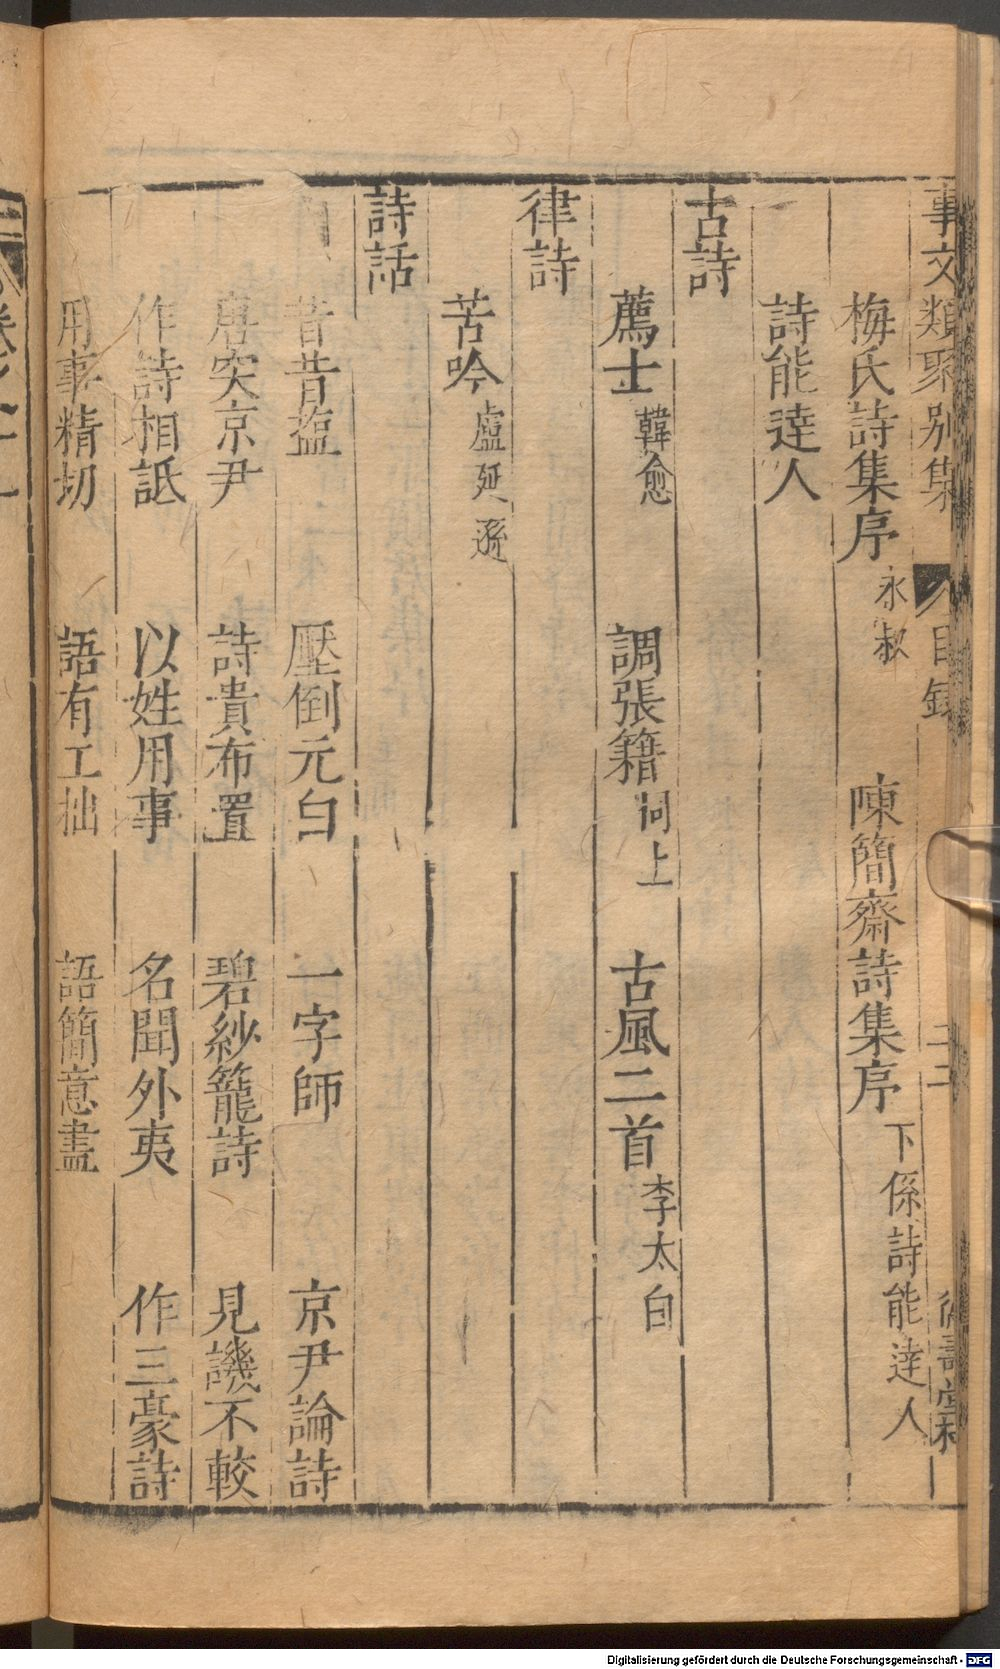 事文類聚别集 目錄 二二
梅氏詩集序 永叔 陳簡齋詩集序 下係詩能逹人
詩能逹人
古詩
薦士 韓愈 調張籍 同上 古風二首 李太白
律詩
苦吟 盧延遜
詩話
昔昔 壓倒元白 一字師 京尹論詩
唐突京尹 詩貴布置 碧紗籠詩 見譏不較
作詩相詆 以姓用事 名聞外夷 作三豪詩
用事精切 語有工拙 語簡意盡
Digitalisierung gefördert durch die Deutsche Forschungsgemeinschaft - DFG